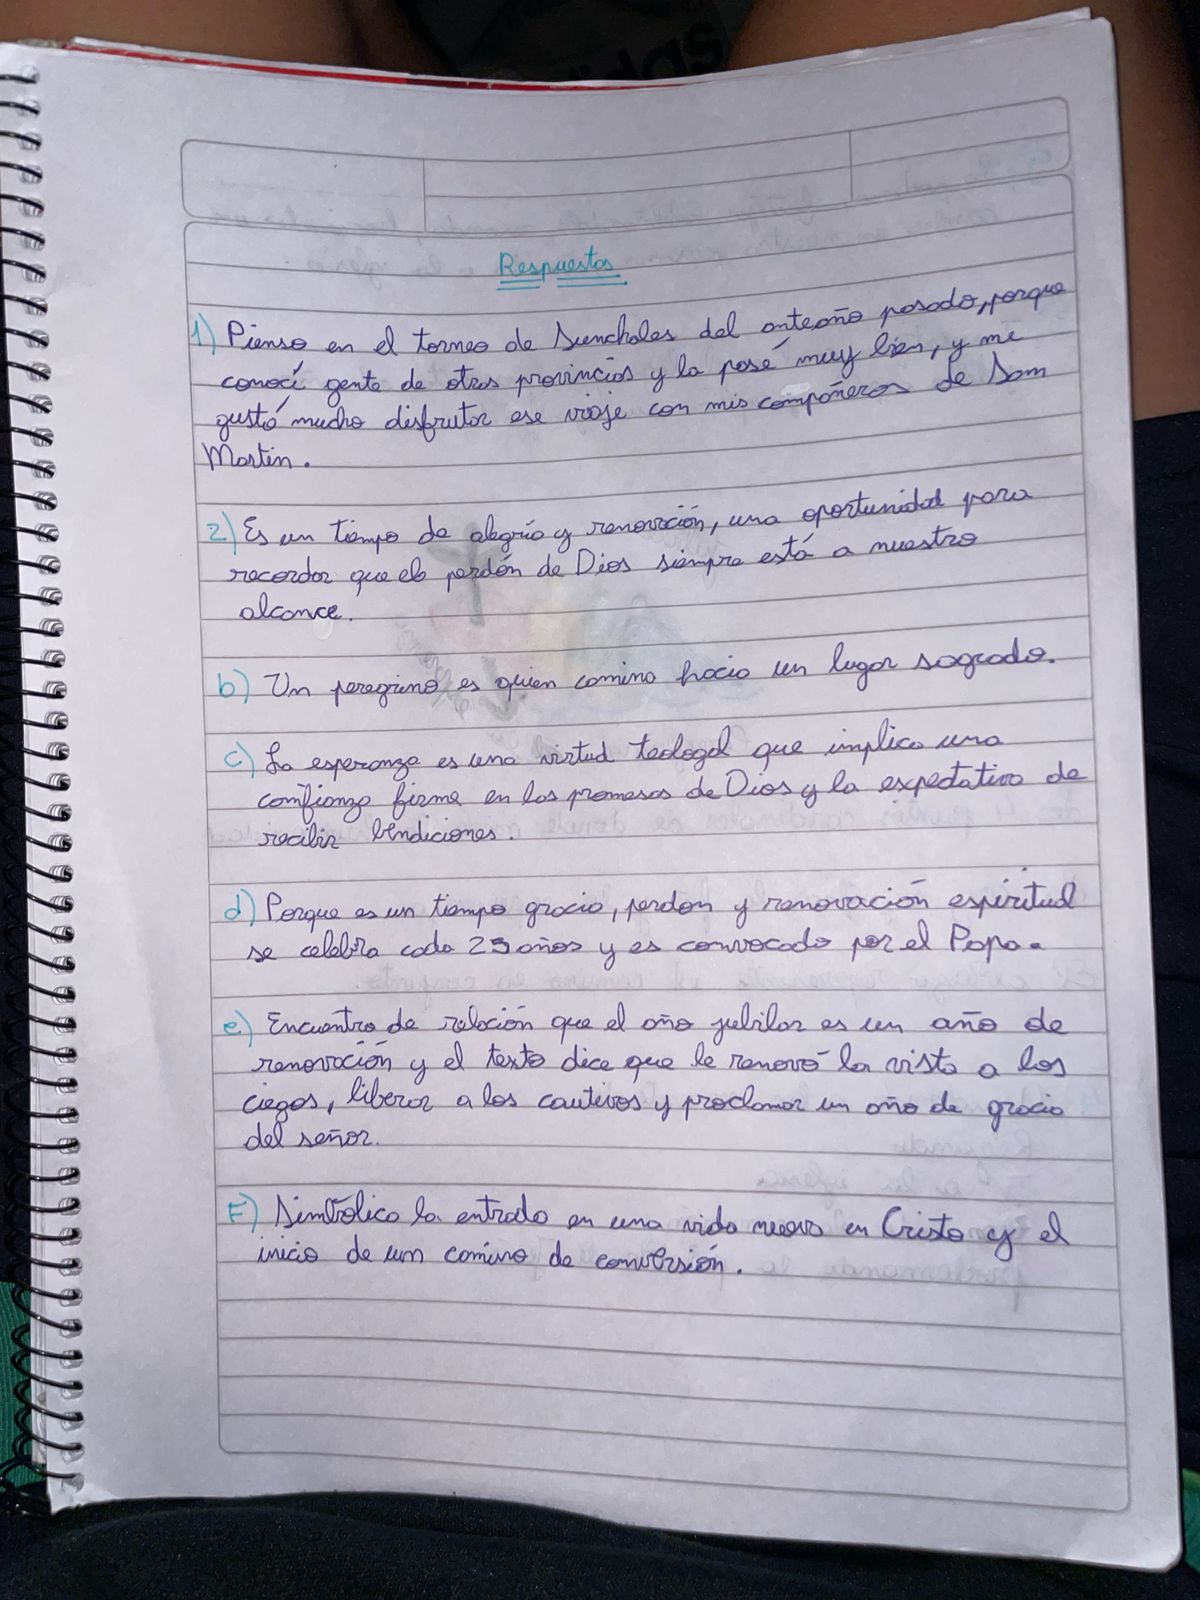 Respuestas
1) Pienso en el torneo de Sunchales del anteaño pasado, porque
conocí gente de otras provincias y la pasé muy bien, y me
gustó mucho disfrutar ese viaje con mis compañeros de San
Martin.
2) Es un tiempo de alegría y renovación, una oportunidad para
recordar que el perdón de Dios siempre está a nuestro
alcance.
b) Un peregrino es quien camina hacia un lugar sagrado.
c) La esperanza es una virtud teologal que implica una
confianza firme en las promesas de Dios y la expectativa de
recibir bendiciones.
d) Porque es un tiempo gracia, perdon y renovación espiritual
se celebra cada 25 años y es convocado por el Papa.
e) Encuentro de relación que el año jubilar es un año de
renovación y el texto dice que le renovó la vista a los
ciegos, liberar a los cautivos y proclamar un año de gracia
del señor.
F) Simbólica la entrada en una vida nueva en Cristo y el
inicio de un camino de conversión.